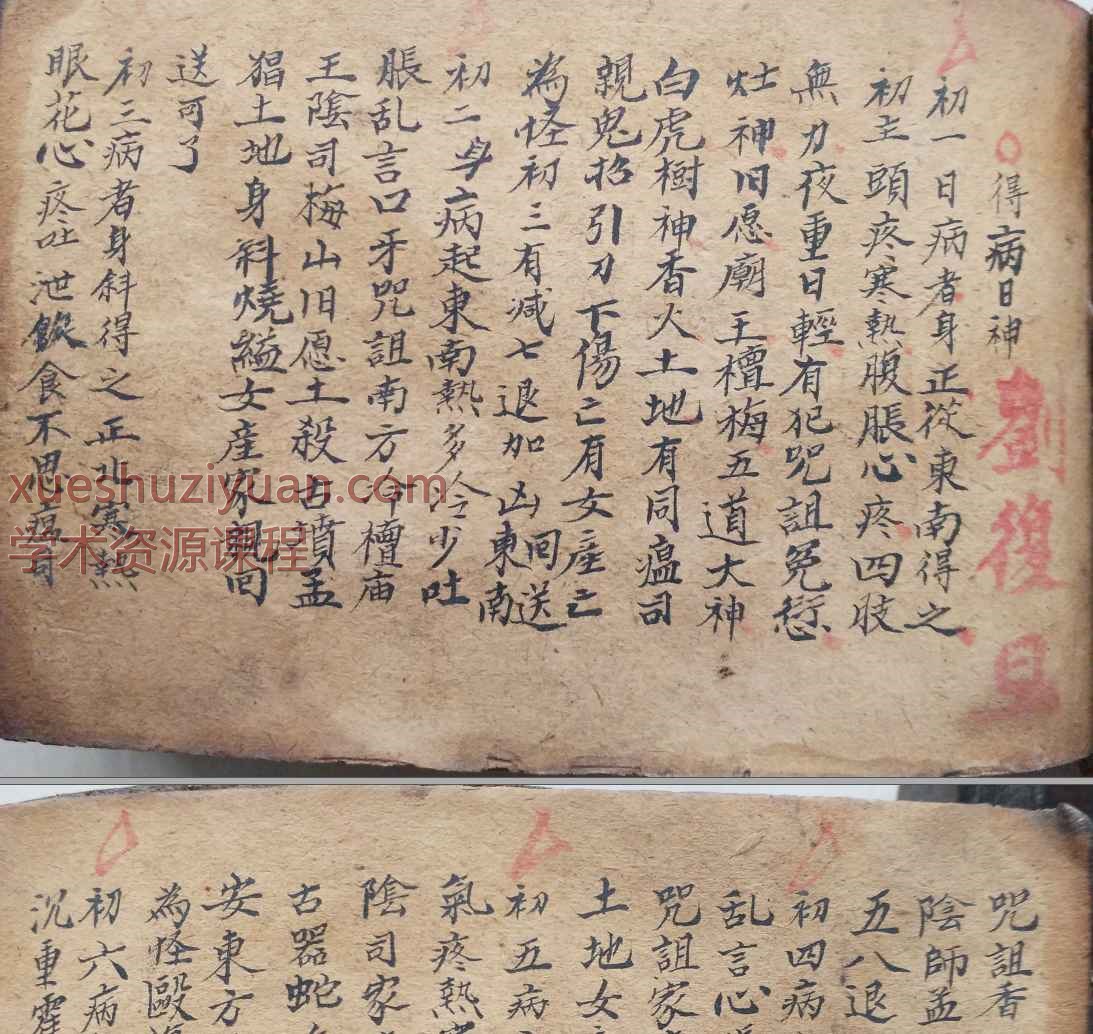 得病日神
劉復旦
初一日病者身正從東南得之
初主頭疼寒熱腹脹心疼四肢
無力夜重日輕有犯咒詛冤愆
灶神旧愿廟王檀梅五道大神
白虎樹神香火土地有同瘟司
親鬼招引刀下傷亡有女產亡
為怪初三有减七退加凶東南回送
初二身病起東南熱多冷少吐
脹乱言口牙咒詛南方令檀庙
王陰司梅山旧愿土殺古墳孟
猖土地身斜燒縊女產家親回
送可了
初三病者身斜得之正北寒熱
眼花心疼吐泄飲食不思瘟司
xueshuziyuan.com
学术资源课程
咒詛香
陰師孟
五八退
初四病
乱言心
咒詛家
土地女
初五病
氣疼熱
陰司家
古器蛇
安東方
為怪毆
初六病
沉重